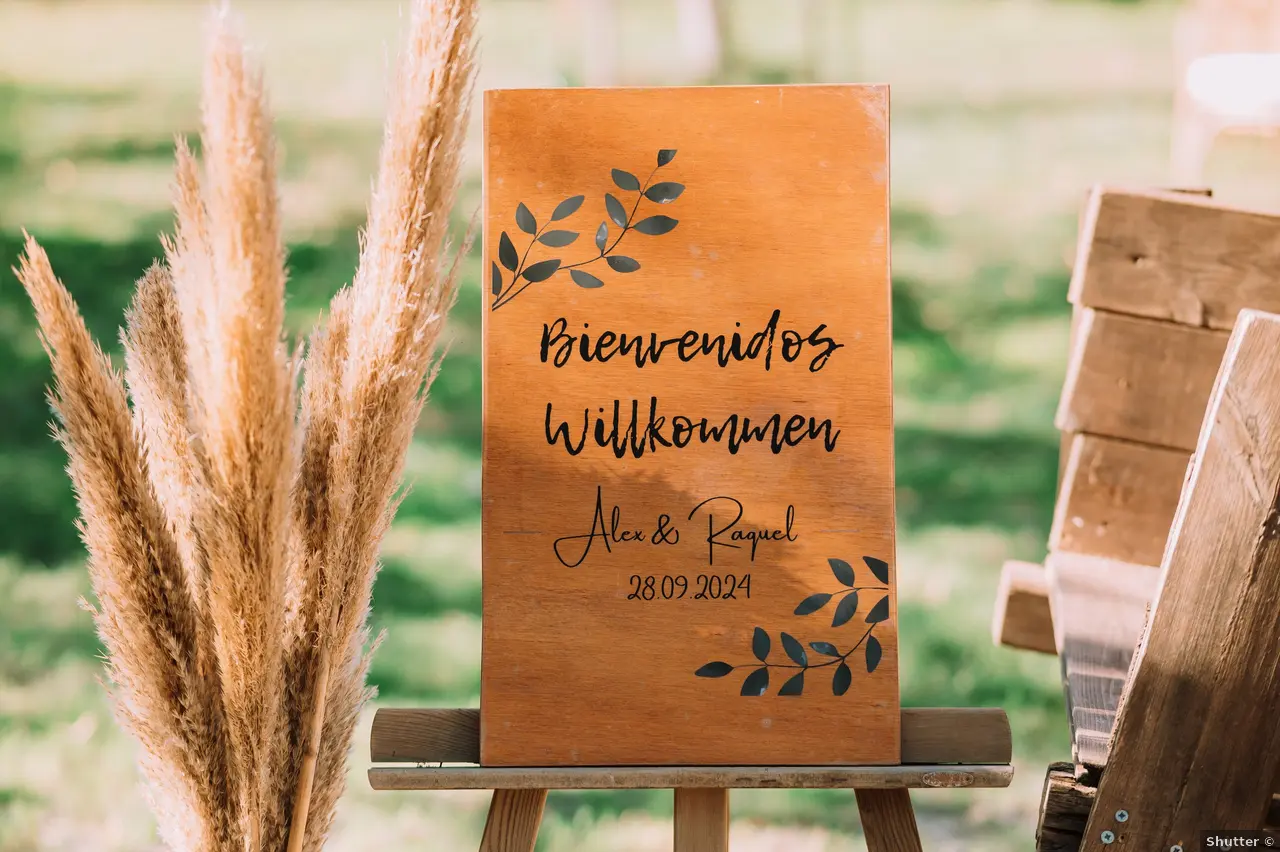 Bienvenidos
Willkommen
Alex & Raquel
28.09.2024
Shutter ©